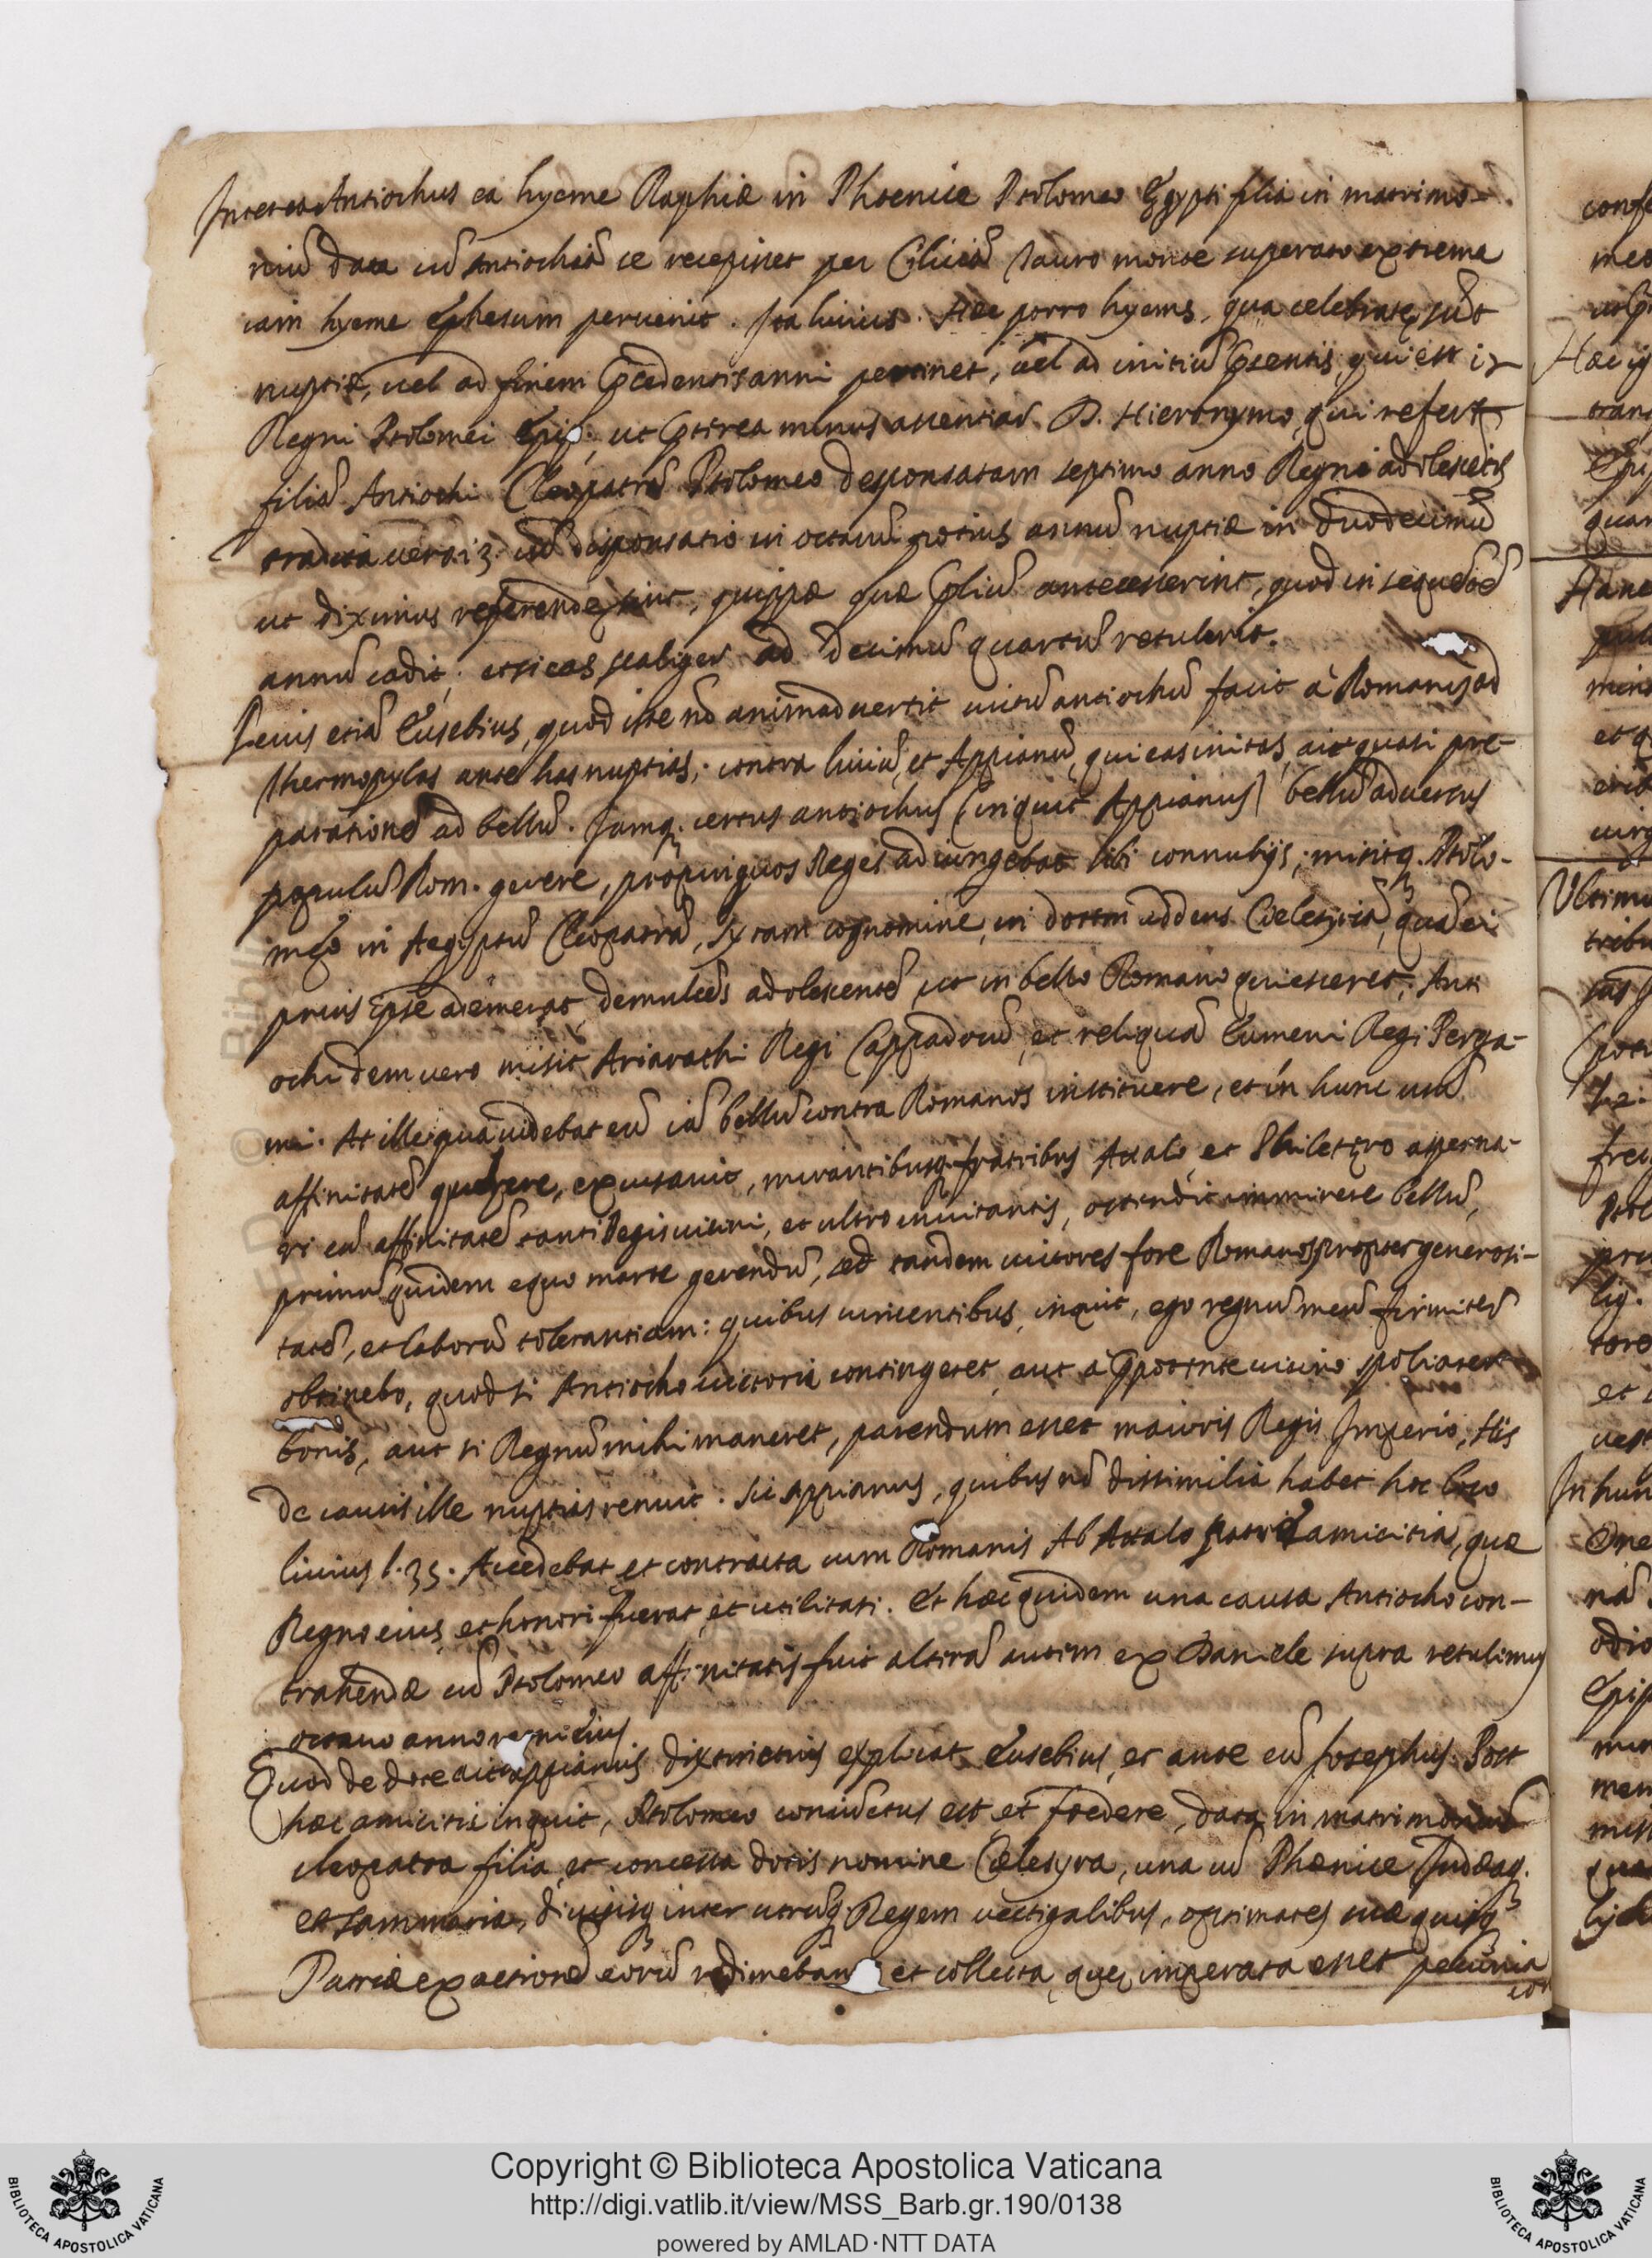 Interea Antiochus ea hyeme Raphiæ in Phoenice Ptolomeo Egypti filia in matrimo-
niũ data cũ Antiochiã se recepisset per Ciliciã Tauro monte superato extrema
iam hyeme Ephesum pervenit. Ita livius. Hæc porro hyems, qua celebratę sũt
nuptiæ, vel ad finem p̃cedentis anni pertinet, vel ad initiũ p̃sentis, qui est 12
Regni Ptolomei Epip., ut p̃terea minus assentiar D. Hieronymo, qui refert
filiã Antiochi Cleopatrã Ptolomeo desponsatam septimo anno Regni adolescẽtis
tradita vero 13. cũ disponsatio in octavũ potius annũ nuptiæ in duodecimũ
ut diximus referendę sint, quippe quæ p̃liũ antecesserint, quod in sequẽtẽ
annũ cadit; etsi eas scaliger ad decimũ quartũ retulerit.
etiã Eusebius, quod iste nõ animadvertit victũ antiochũ facit à Romanis ad
thermopylas ante has nuptias; contra liviũ, et Appianũ, qui eas initas, ait quasi pre-
parationẽ ad bellũ. Iamq. certus antiochus (inquit Appianus) bellũ adversus
populũ Rom. gerere, propinquos Reges adiungebat sibi connubijs; misitq. Ptolo-
męo in Aegyptũ Cleopatrã, Syram cognomine, in dotem addens Cœlesyriã, quã ei
prius ipse ademerat, demulcẽs adolescentẽ, ut in bello Romano quiesceret; Anti
ochidem vero misit Ariarathi Regi Cappadocũ, et reliquã Eumeni Regi Perga-
mi. At ille quia videbat eũ iã bellũ contra Romanos instituere, et in hunc usũ
affinitatẽ quęrere, excusavit, mirantibusq. fratribus Attalo, et Philetęro asperna-
ri eũ affinitatẽ tanti Regis vicini, et ultro invitantis, ostendit imminere bellũ,
primũ quidem equo marte gerendũ, sed tandem victores fore Romanos propter generosi-
tatẽ, et laborũ tolerantiam: quibus vincentibus, inquit, ego regnũ meũ firmiter
obtinebo, quod si Antiocho victoria contingeret, aut a p̃potente vicino spoliarer
bonis, aut si Regnũ mihi maneret, parendum esset maioris Regis Imperio; His
de causis ille nuptias renuit. Sic Appianus, quibus nõ dissimilia habet hoc loco
livius l. 35. Accedebat et contracta cum Romanis Ab Attalo patre amicitia, quæ
Regno eius, et honori fuerat, et utilitati. Et hæc quidem una causa Antiocho con-
trahendæ cũ Ptolomeo affinitatis fuit alterã autem ex Daniele supra retulimus
octavo anno regni eius
Quod de dote ait Appianus distinctius explicat Eusebius, et ante eũ Josephus. Post
hæc amicitia inquit, Ptolomeo coniunctus est et foedere, data in matrimoniũ
cleopatra filia, et concessa dotis nomine Cœlesyra, una cũ Phœnice, Iudæaq.
et sammaria, divisisq. inter utrũq. Regem vectigalibus, optimates suæ quisq.
Patriæ exactionẽ eorũ redimebant et collecta, quę, imperata esset pecunia
Copyright © Biblioteca Apostolica Vaticana
http://digi.vatlib.it/view/MSS_Barb.gr.190/0138
powered by AMLAD·NTT DATA
BIBLIOTECA APOSTOLICA VATICANA
BIBLIOTECA APOSTOLICA VATICANA